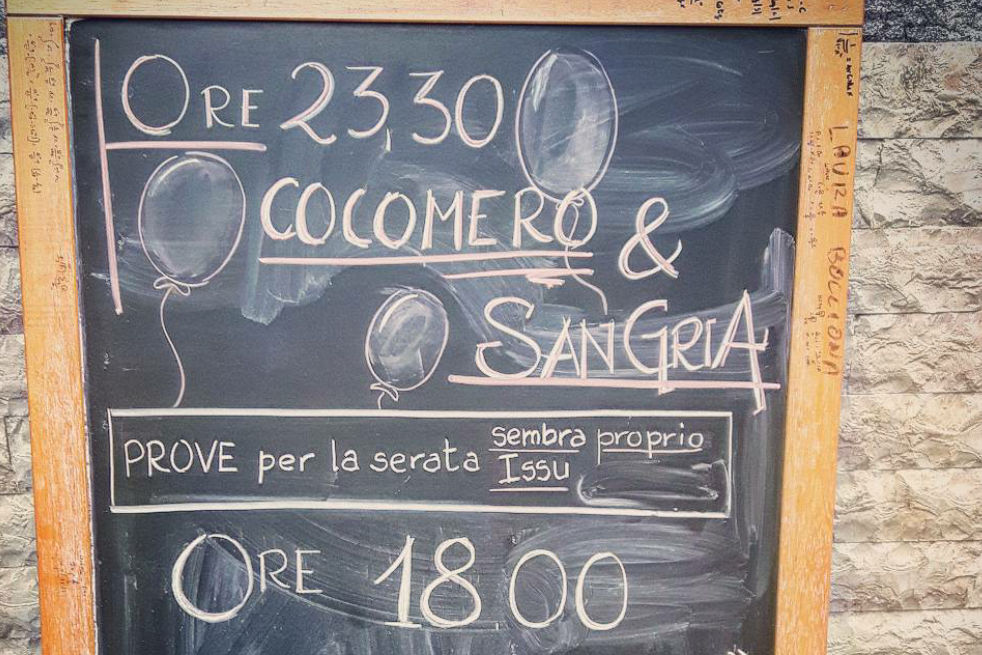 ORE 23,30
COCOMERO &
SANGRIA
PROVE per la serata sembra proprio
Issu
ORE 18 00